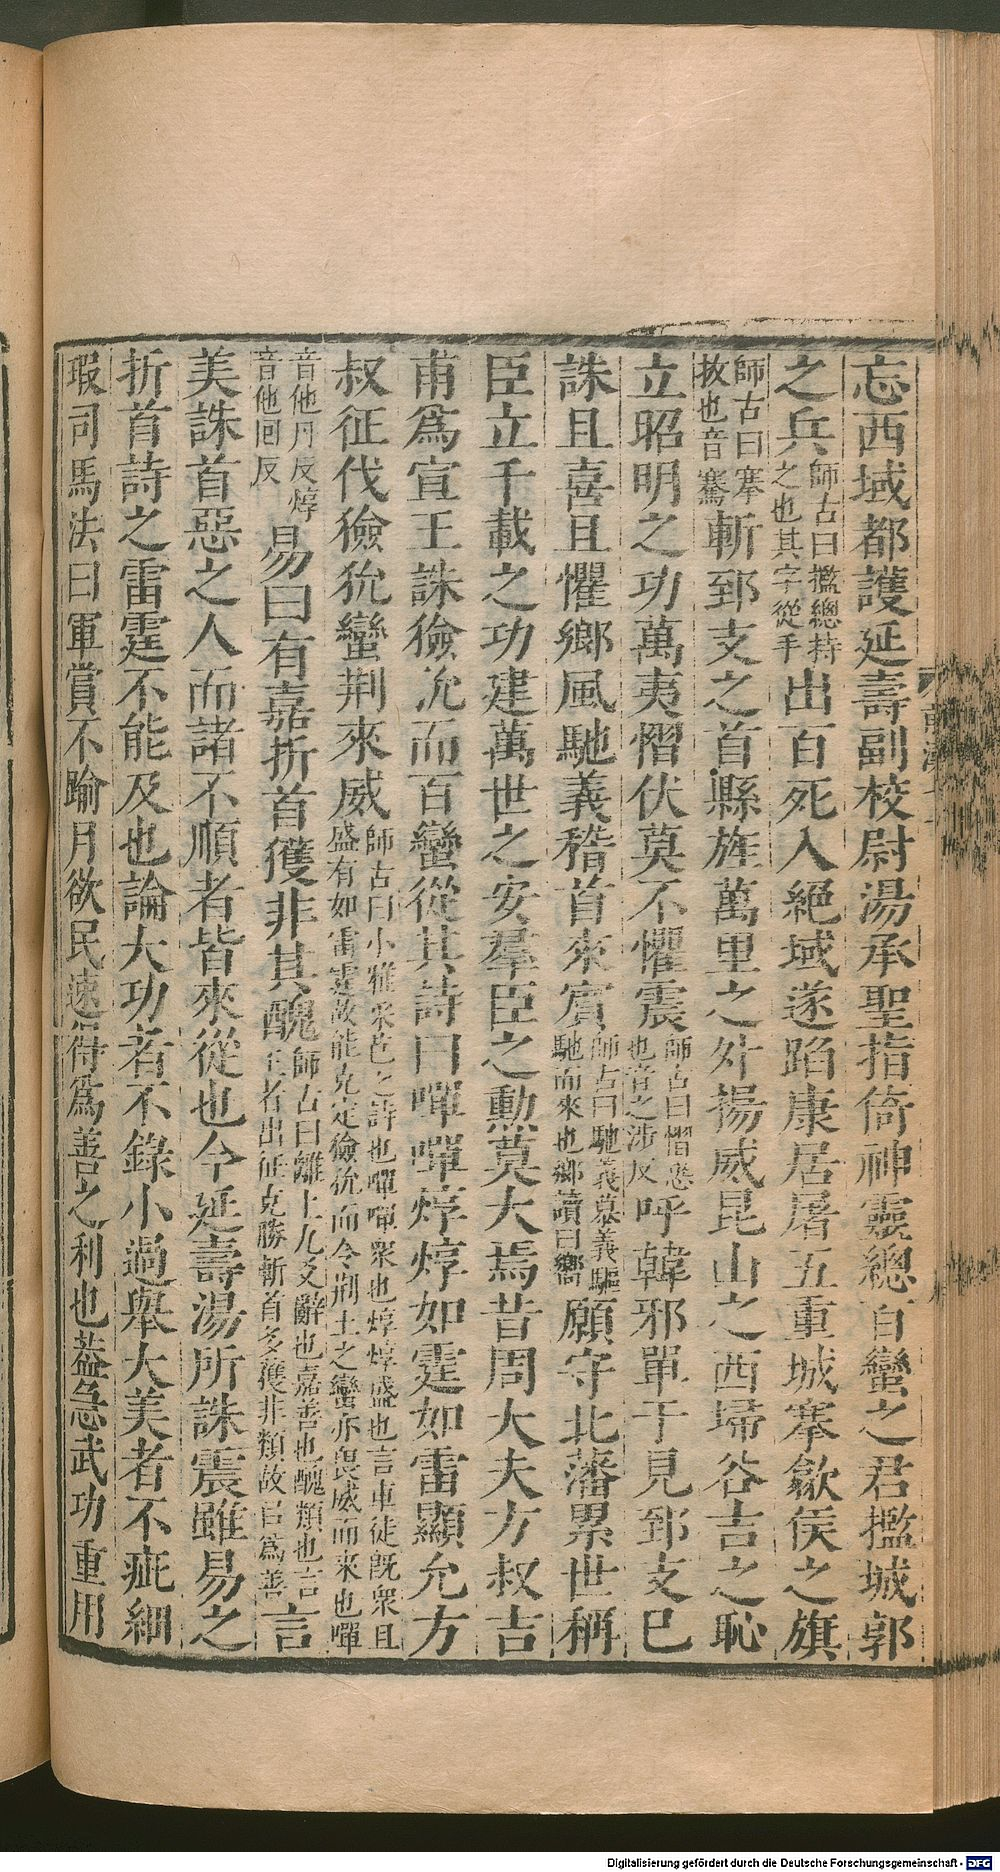 忘西域都護延壽副校尉湯承聖指倚神靈總百蠻之君擥城郭
之兵師古曰擥總持之也其字從手出百死入絶域遂蹈康居屠五重城搴歙侯之旗
師古曰搴拔也音騫斬郅支之首縣旌萬里之外揚威昆山之西埽谷吉之恥
立昭明之功萬夷慴伏莫不懼震師古曰慴恐也音之涉反呼韓邪單于見郅支已
誅且喜且懼鄉風馳義稽首來賓師古曰馳義慕義驅馳而來也鄉讀曰嚮願守北藩累世稱
臣立千載之功建萬世之安羣臣之勳莫大焉昔周大夫方叔吉
甫爲宣王誅獫狁而百蠻從其詩曰嘽嘽焞焞如霆如雷顯允方
叔征伐獫狁蠻荆來威師古曰小雅采芑之詩也嘽嘽衆也焞焞盛也言車徒旣衆且盛有如雷霆故能克定獫狁而令荆土之蠻亦畏威而來也嘽
音他丹反焞音他回反易曰有嘉折首獲非其醜師古曰離上九爻辭也嘉善也醜類也言王者出征克勝斬首多獲非類故以爲善言
美誅首惡之人而諸不順者皆來從也今延壽湯所誅震雖易之
折首詩之雷霆不能及也論大功者不錄小過舉大美者不疵細
瑕司馬法曰軍賞不踰月欲民速得爲善之利也葢急武功重用
Digitalisierung gefördert durch die Deutsche Forschungsgemeinschaft - DFG